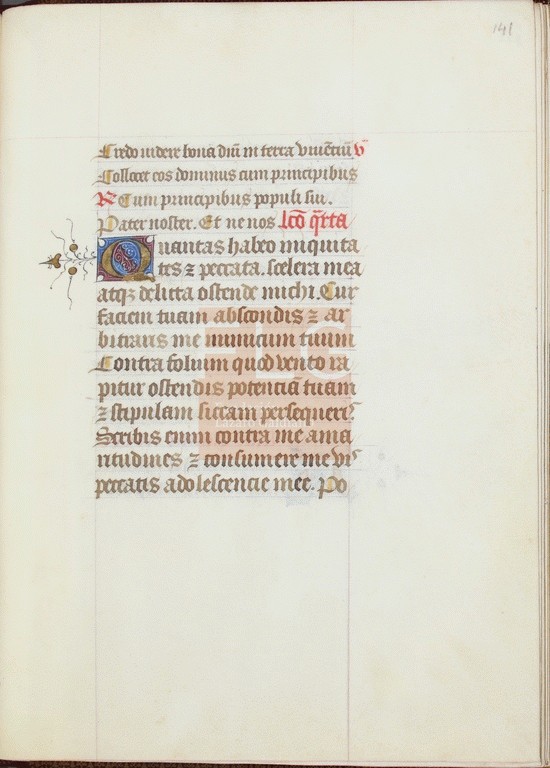 141
Credo videre bona dñi in terra viuẽtiũ v̄
Collocet eos dominus cum principibus
R Cum principibus populi sui.
Pater noster. Et ne nos lcõ q̃rta
Quantas habeo iniquita
tes ⁊ peccata. scelera mea
atqꝫ delicta ostende michi. Cur
faciem tuam abscondis ⁊ ar
bitraris me inimicum tuum
Contra folium quod vento ra
pitur ostendis potenciã tuam
⁊ stipulam siccam persequeris
Scribis enim contra me ama
ritudines ⁊ consumere me vis
peccatis adolescencie mee. Po
FLG
Lázaro Galdiano